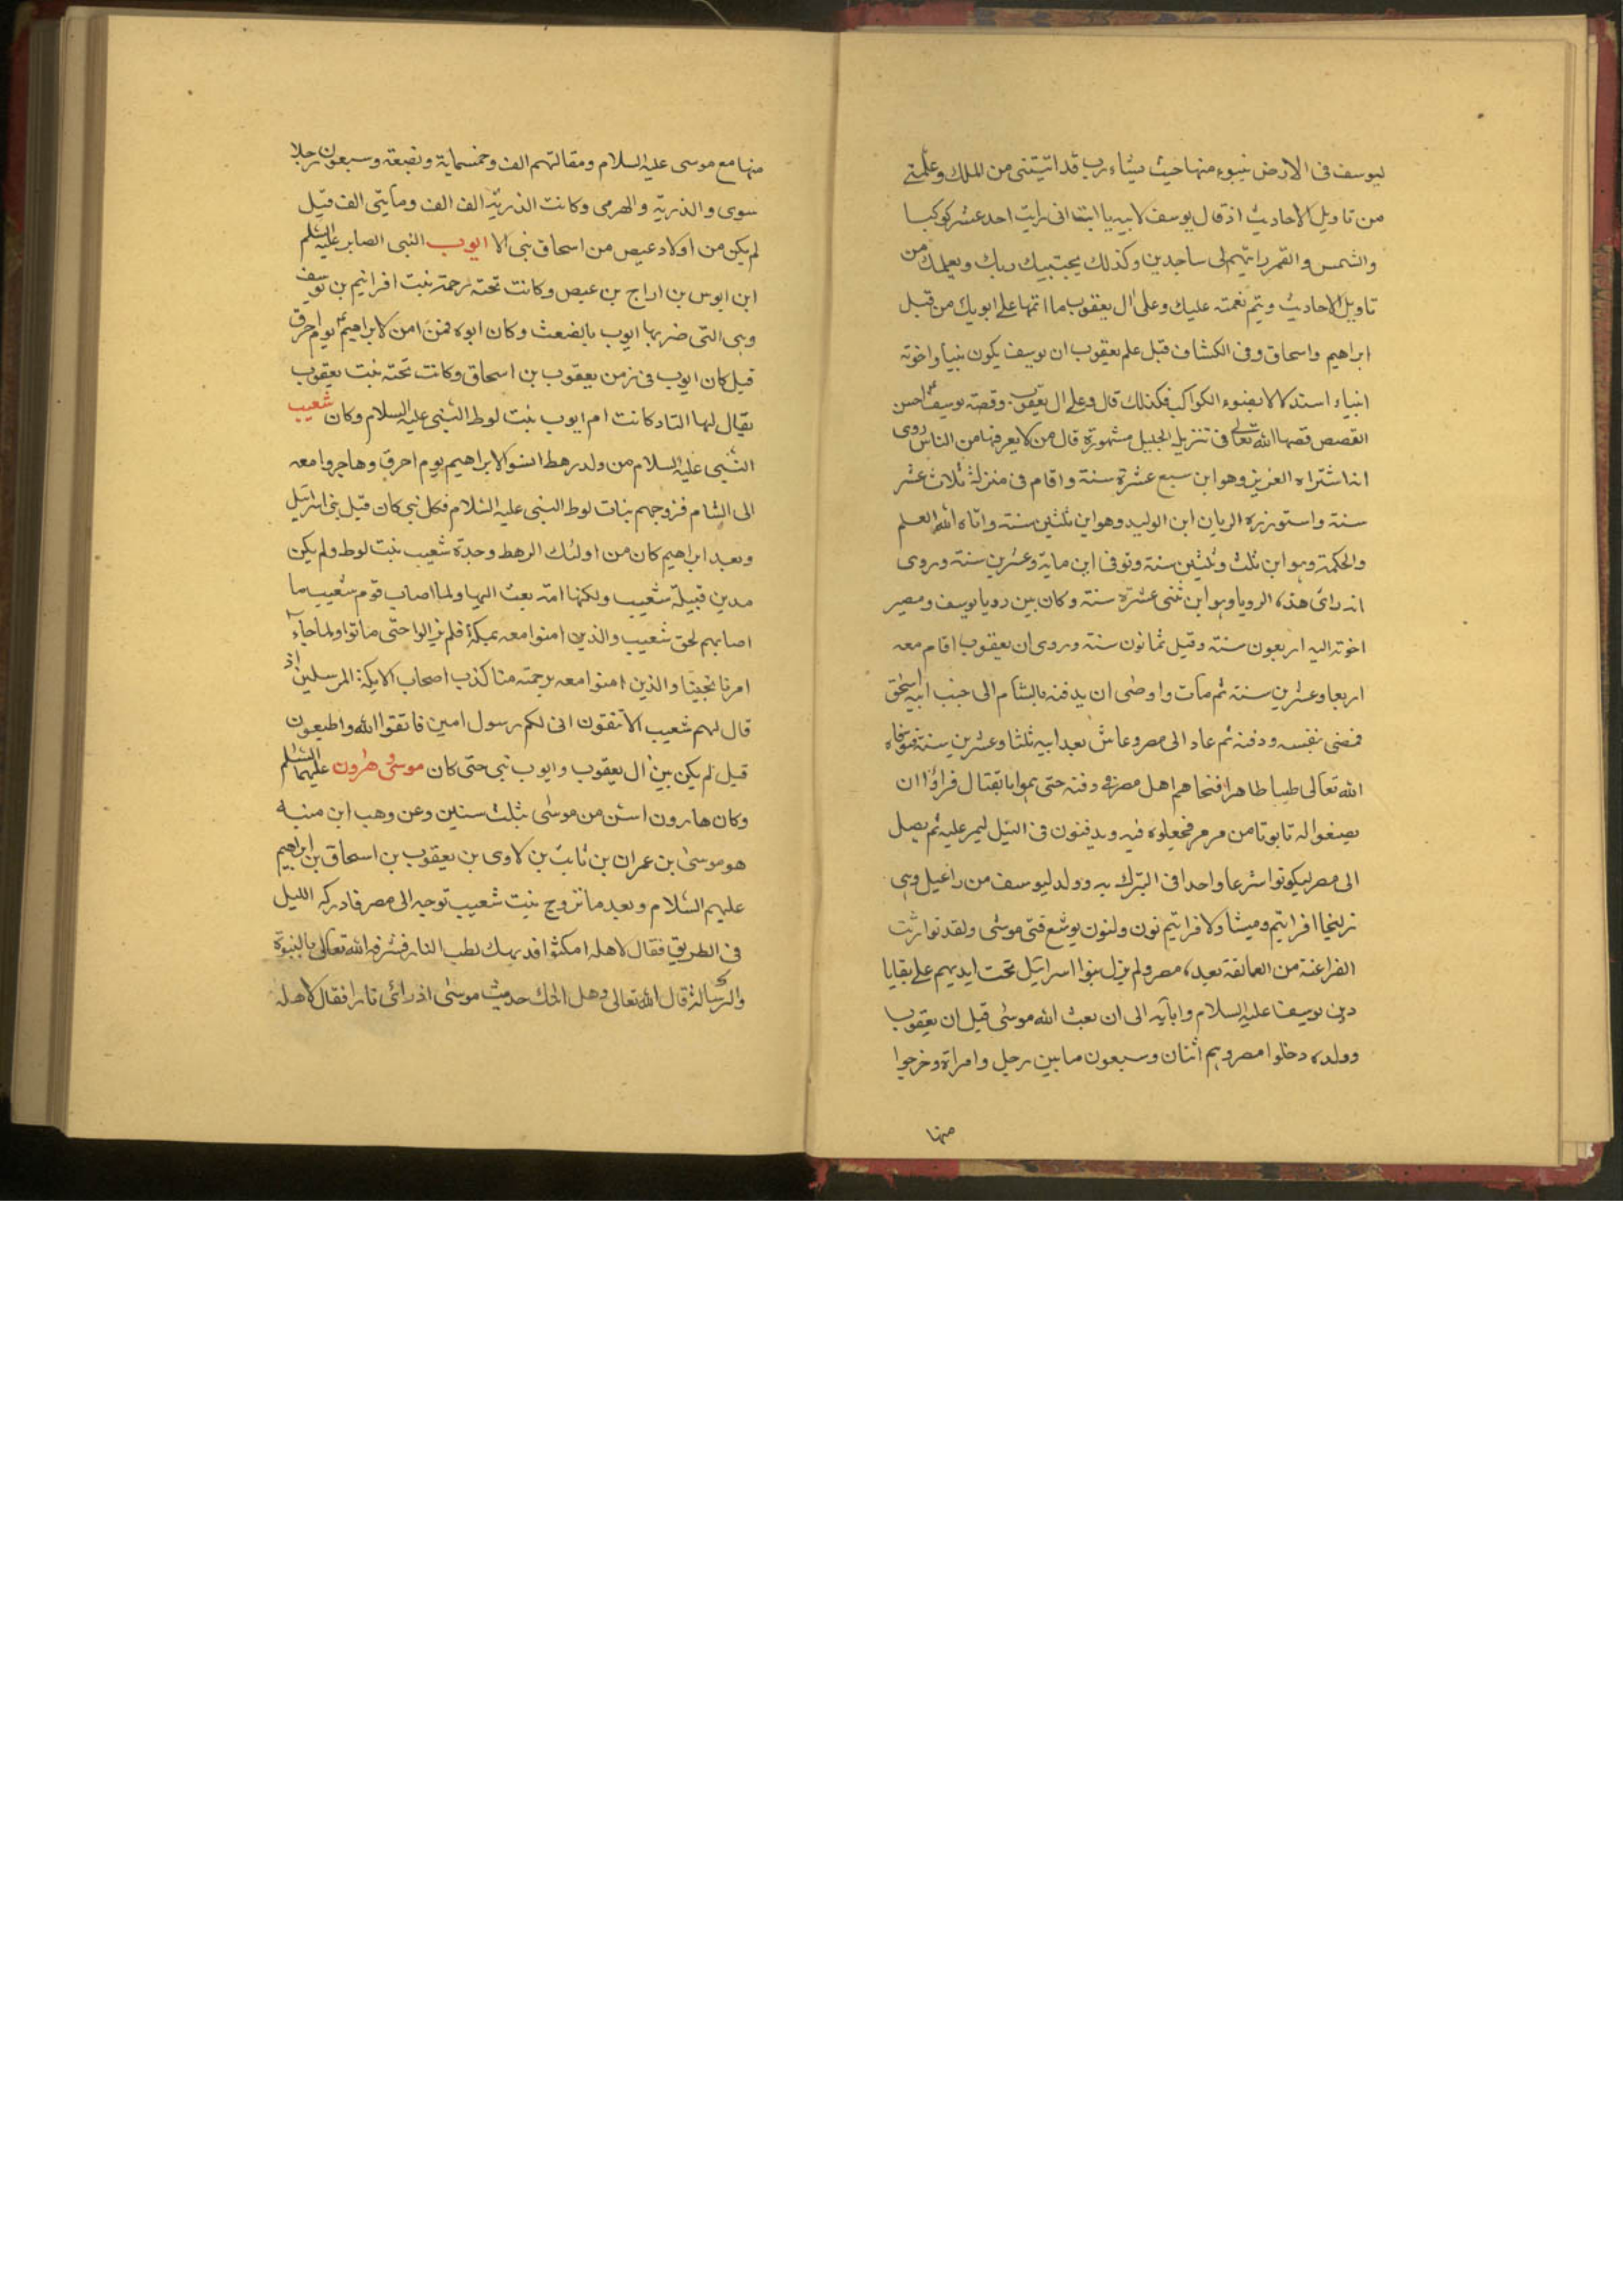 ليوسف فى الارض يتبوء منها حيث يشاء رب قد اتيتنى من الملك وعلمتنى
من تاويل الاحاديث اذ قال يوسف لابيه يا ابت انى رايت احد عشر كوكبا
والشمس والقمر رايتهم لى ساجدين وكذلك يجتبيك ربك ويعلمك من
تاويل الاحاديث ويتم نعمته عليك وعلى ال يعقوب كما اتمها على ابويك من قبل
ابراهيم واسحاق وفى الكشاف قيل علم يعقوب ان يوسف يكون نبيا واخوته
انبياء استدلالا بضوء الكواكب فكذلك قال وعلى ال يعقوب وقصة يوسف احسن
القصص قصها الله تعالى فى تنزيله الجليل مشهورة قال من لا يعرفها من الناس روى
انه اشتراه العزيز وهو ابن سبع عشرة سنة واقام فى منزله ثلاث عشر
سنة واستوزره الريان ابن الوليد وهو ابن ثلثين سنة واتاه الله العلم
والحكمة وهو ابن ثلث وثلثين سنة وتوفى ابن ماية وعشرين سنة وروى
انه راى هذه الرويا وهو ابن ثنتى عشرة سنة وكان بين رويا يوسف ومصير
اخوته اليه اربعون سنة وقيل ثمانون سنة وروى ان يعقوب اقام معه
اربعا وعشرين سنة ثم مات واوصى ان يدفنه بالشام الى جنب ابيه اسحق
فمضى بنفسه ودفنه ثم عاد الى مصر وعاش بعد ابيه ثلثا وعشرين سنة فتوفاه
الله تعالى طيبا طاهرا اهل مصر فى دفنه حتى هموا بالقتال فراوا ان
يصنعوا له تابوتا من مرمر فجعلوه فيه ويدفنون فى النيل ليمر عليه ثم يصل
الى مصر ليكونوا شرعا واحدا فى التبرك به وولد ليوسف من راعيل وهى
زليخا افراثيم وميشا ولافراثيم نون ولنون يوشع فتى موسى ولقد توارثت
الفراعنة من العمالقة بعده مصر ولم يزل بنوا اسرائيل تحت ايديهم على بقايا
دين يوسف عليه السلام وابائه الى ان بعث الله موسى قيل ان يعقوب
وولده دخلوا مصر وهم اثنان وسبعون ما بين رجل وامراة وخرجوا
منها
منها مع موسى عليه السلام ومقاتلتهم الف وخمسماية وبضعة وسبعون رجلا
سوى والذرية والهرمى وكانت الذرية الف الف ومايتى الف قيل
لم يكن من اولاد عيص من اسحاق نبى الا ايوب النبى الصابر عليه السلم
ابن ابوس بن اراج بن عيص وكانت تحته رحمة بنت افراثيم بن يوسف
وهى التى ضربها ايوب بالضغث وكان ابوه فمن امن لابراهيم يوم احرق
قيل كان ايوب فى زمن يعقوب بن اسحاق وكانت تحته بنت يعقوب
يقال لها كانت ام ايوب بنت لوط النبى عليه السلام وكان شعيب
النبى عليه السلام من ولد رهط امنوا لابراهيم يوم احرق وهاجروا معه
الى الشام فزوجهم بنات لوط النبى عليه السلام فكل نبى كان قبل بنى اسرائيل
وبعد ابراهيم كان من اولئك الرهط وجدة شعيب بنت لوط ولم يكن
مدين قبيلة شعيب ولكنها امة بعث اليها ولما اصاب قوم شعيب ما
اصابهم لحق شعيب والذين امنوا معه بمكة فلم يزالوا حتى ماتوا ولما جاء
امرنا نجينا والذين امنوا معه برحمة منا كذب اصحاب الايكة المرسلين اذ
قال لهم شعيب الا تتقون انى لكم رسول امين فاتقوا الله واطيعون
قيل لم يكن بين ال يعقوب وايوب نبى حتى كان موسى وهرون عليهما السلم
وكان هارون اسن من موسى بثلث سنين وعن وهب ابن منبه
هو موسى بن عمران بن ثابت بن لاوى بن يعقوب بن اسحاق بن ابراهيم
عليهم السلام وبعد ما تزوج بنت شعيب توجه الى مصر فادركه الليل
فى الطريق فقال لاهله امكثوا لطلب النار فشرفه الله تعالى بالنبوة
والرسالة قال الله تعالى وهل اتاك حديث موسى اذ راى نارا فقال لاهله